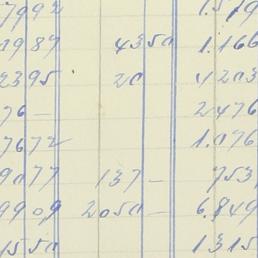 7992 1.519
1989 4350 1.166
2395 20 4203
76 – 2476
7672 1.076
9077 137 – 753
9909 2050 – 6.849
1550 1315